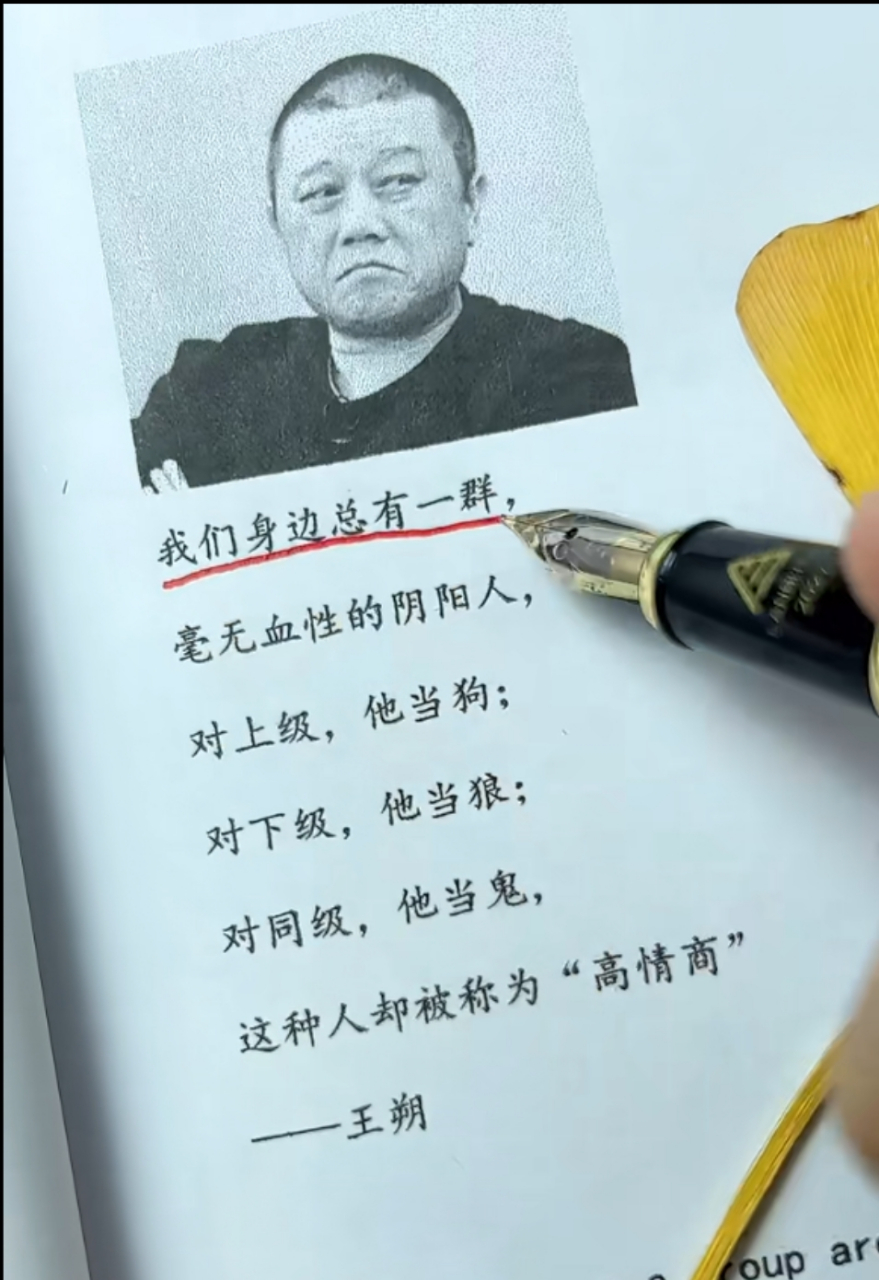 我们身边总有一群，
毫无血性的阴阳人，
对上级，他当狗；
对下级，他当狼；
对同级，他当鬼，
这种人却被称为“高情商”
——王朔
group are